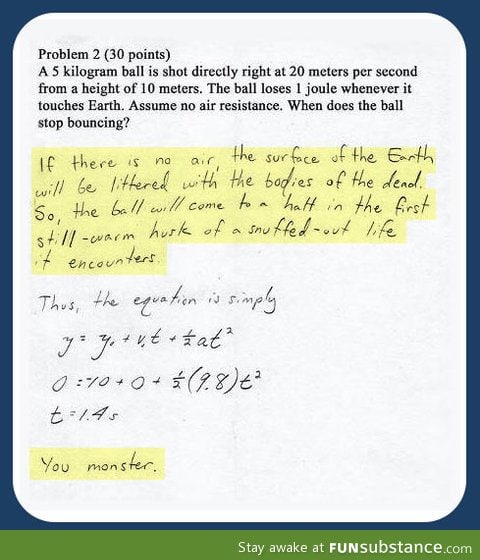 Problem 2 (30 points)
A 5 kilogram ball is shot directly right at 20 meters per second
from a height of 10 meters. The ball loses 1 joule whenever it
touches Earth. Assume no air resistance. When does the ball
stop bouncing?
If there is no air, the surface of the Earth
will be littered with the bodies of the dead.
So, the ball will come to a halt in the first
still-warm husk of a snuffed-out life
it encounters.
Thus, the equation is simply
y = y₀ + v₀t + ½at²
0 = -10 + 0 + ½(9.8)t²
t = 1.4s
You monster.
Stay awake at FUNsubstance.com